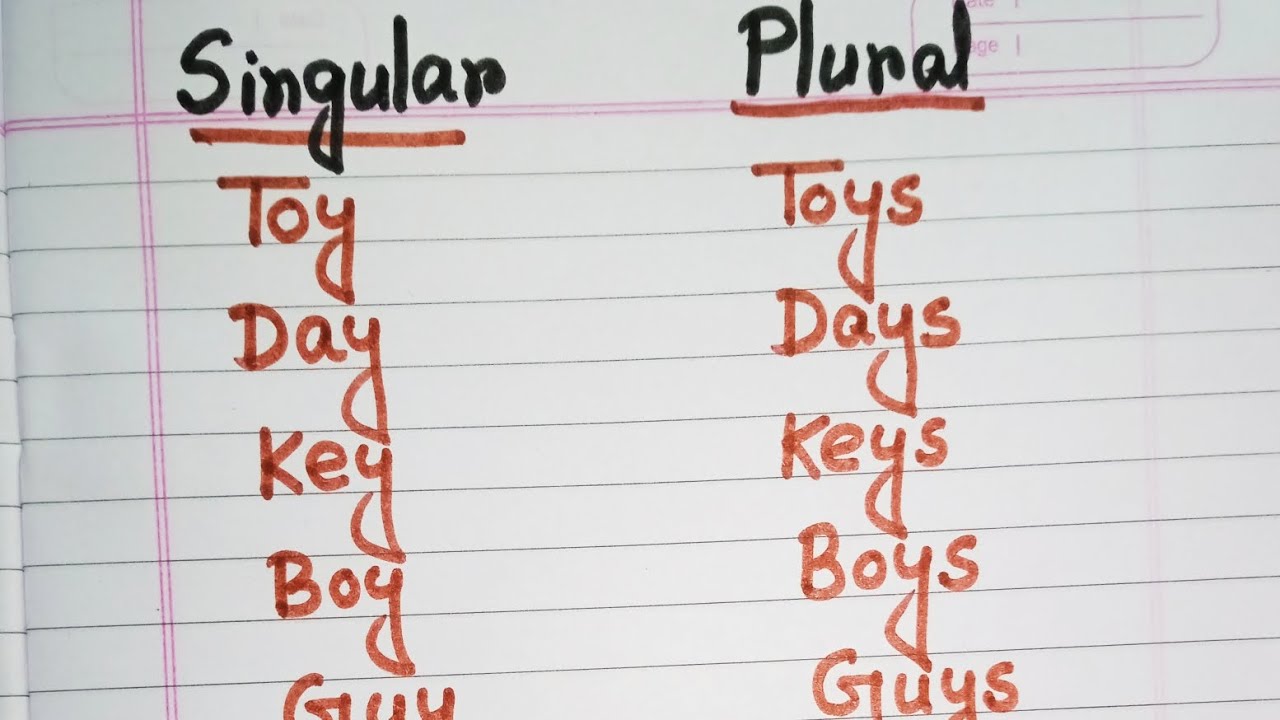 Singular Plural
Toy Toys
Day Days
Key Keys
Boy Boys
Guy Guys